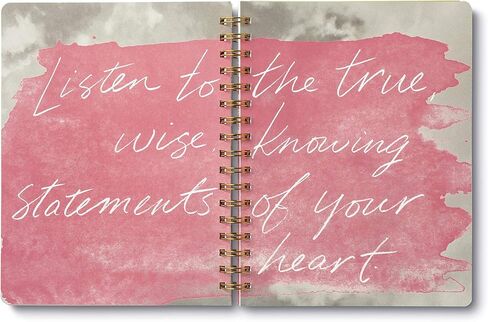 Listen to the true
wise knowing
statements of your
heart.